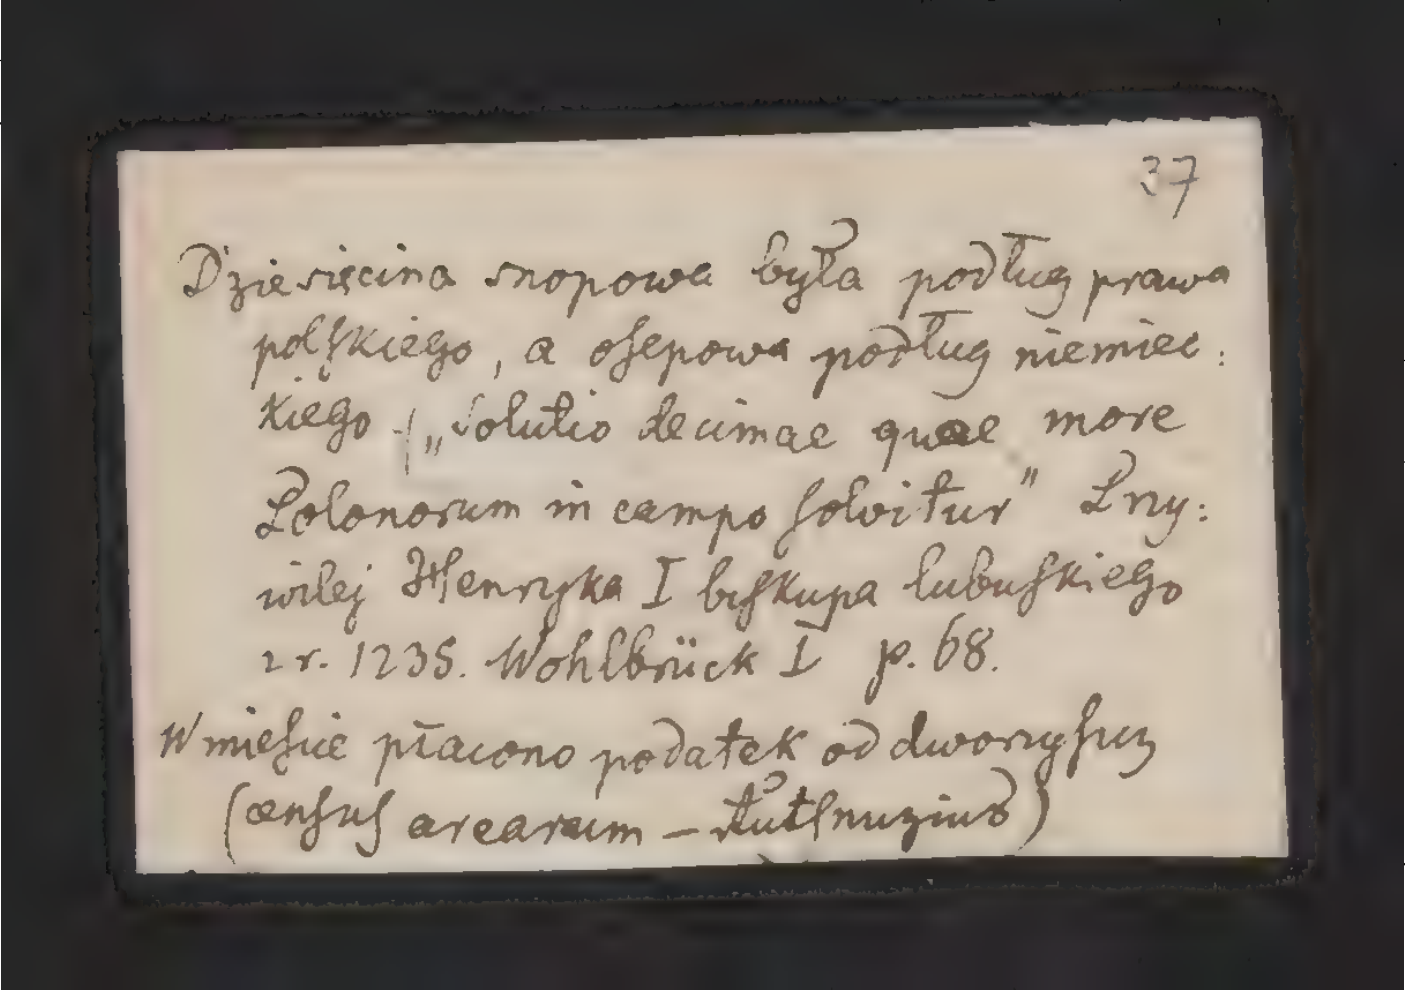 37
Dziesięcina snopowa była podług prawa
polskiego, a osepowa podług niemiec:
kiego („Solutio decimae quae more
Polonorum in campo solvitur" Przy:
wilej Henryka I biskupa lubuskiego
z r. 1235. Wohlbrück I p. 68.
W mieście płacono podatek od dworzyszcz
(census arearum –